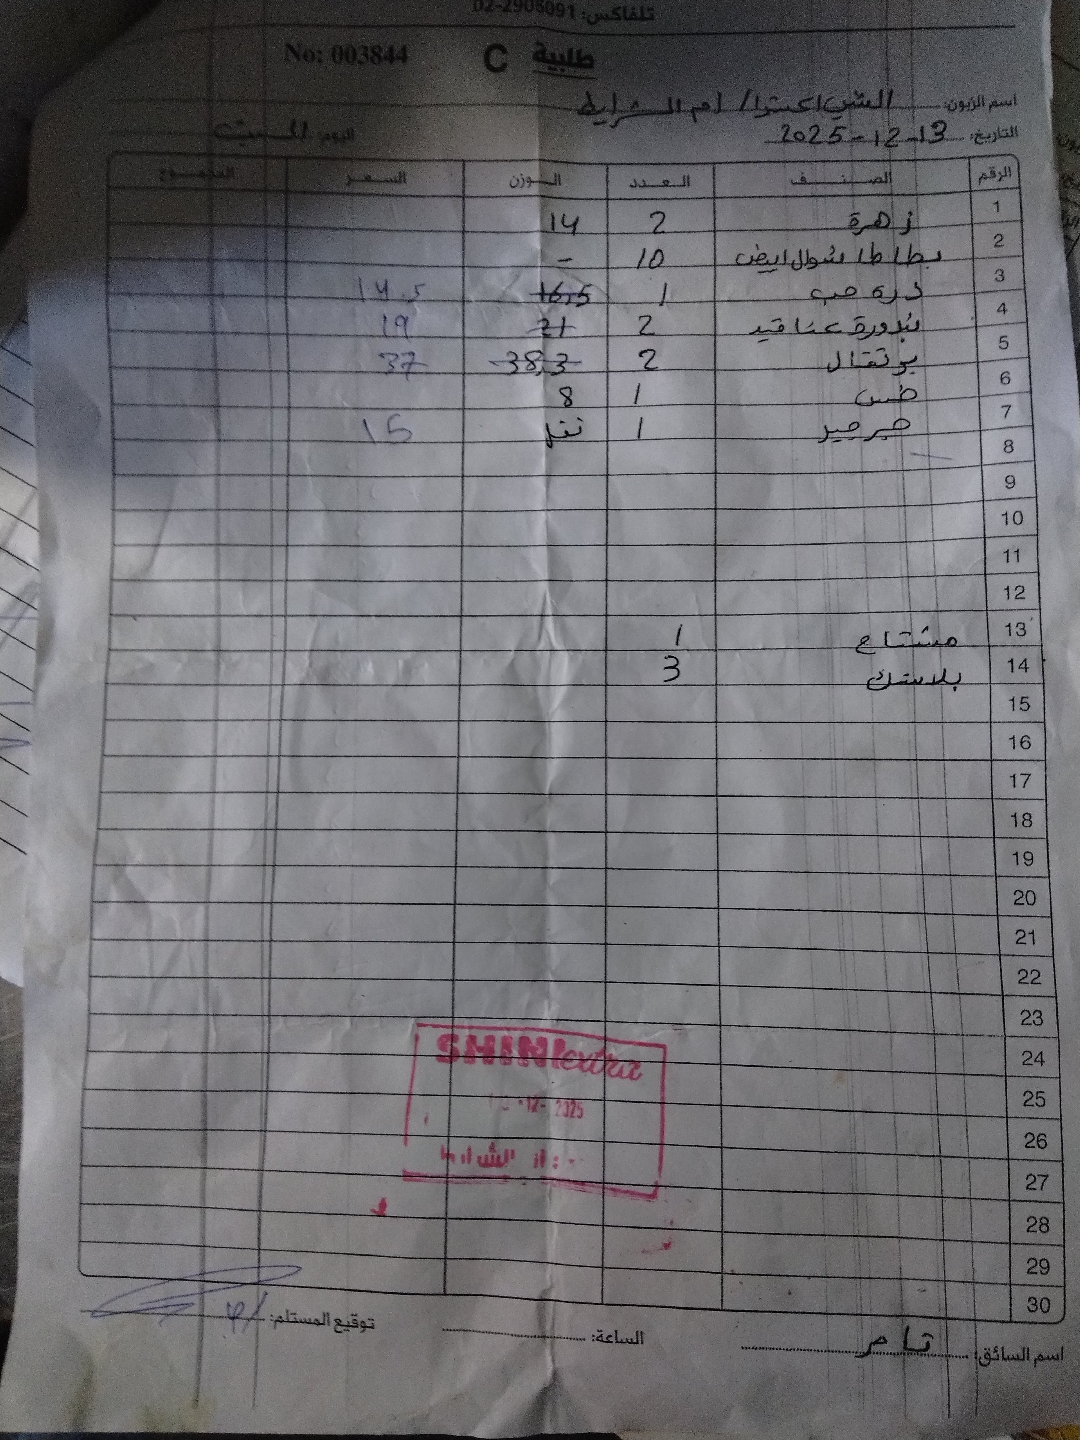 تلفاكس: 02-2908091
No: 003844 C طلبية
اسم الزبون: الشني اكسترا / ام الشرايط
التاريخ: 13-12-2025 اليوم: السبت
الرقم الصنف العدد الوزن السعر المجموع
1 زهرة 2 14
2 بطاطا شوال ابيض 10 -
3 ذرة حب 1 16.5 14.5
4 بندورة عناقيد 2 21 19
5 برتقال 2 38.3 37
6 خس 1 8
7 جرجير 1 15
8
9
10
11
12
13 مشتاح 1
14 بلاستك 3
15
16
17
18
19
20
21
22
23
24
25
26
27
28
29
30
SHINI extra
-12- 2025
اسم السائق: تامر الساعة: توقيع المستلم: